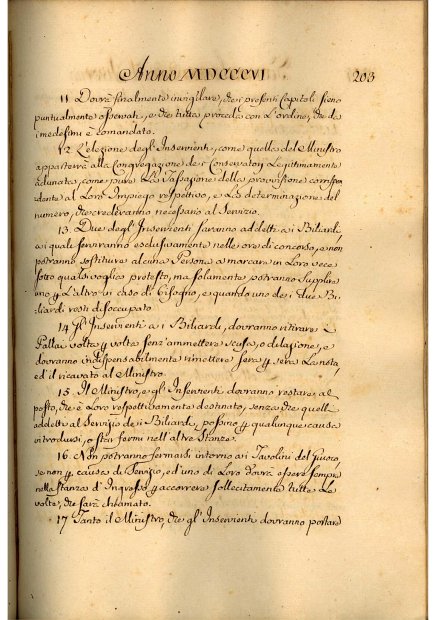 Anno MDCCCVI 203
11 Dovrà finalmente invigilare, che i presenti Capitoli sieno
puntualmente osservati, e che tutto proceda con l'ordine, che da
i medesimi è comandato.
12 L'elezione degl'Inservienti, come quella del Ministro
apparterrà alla Congregazione dei Conservatori Legittimamente
adunata, come pure La Tassazione della provvisione corrispon
dente al Loro Impiego respettivo, e La determinazione del
numero, che crederanno necessario al Servizio.
13. Due degl'Inservienti saranno addetti a i Biliardi
a i quali serviranno esclusivamente nelle ore di concorso, e non
potranno sostituire alcuna Persona a marcare in Loro vece
sotto qualsivoglia pretesto, ma solamente potranno Supplire
uno p L'altro in caso di bisogno, e quando uno dei due Bi,
liardi resti disoccupato.
14 Gl'Inservienti a i Biliardi, dovranno ritirare i
Pallai volta p volta senz'ammettere scusa, o dilazione, e
dovranno indispensabilmente rimettere sera p sera La nota
ed il ricavato al Ministro.
15. Il Ministro, e gl'Inservienti dovranno restare al
posto, che è Loro respettivamente destinato, senza che quelli
addetti al Servizio dei Biliardi, possino p qualunque causa
introdursi, o star fermi nell'altre Stanze.
16. Non potranno fermarsi intorno a i Tavolini del Giuoco
se non p causa di Servizio, ed uno di Loro dovrà essere sempre
nella Stanza d'Ingresso p accorrere sollecitamente tutte Le
volte, che sarà chiamato.
17 Tanto il Ministro, che gl'Inservienti dovranno portare